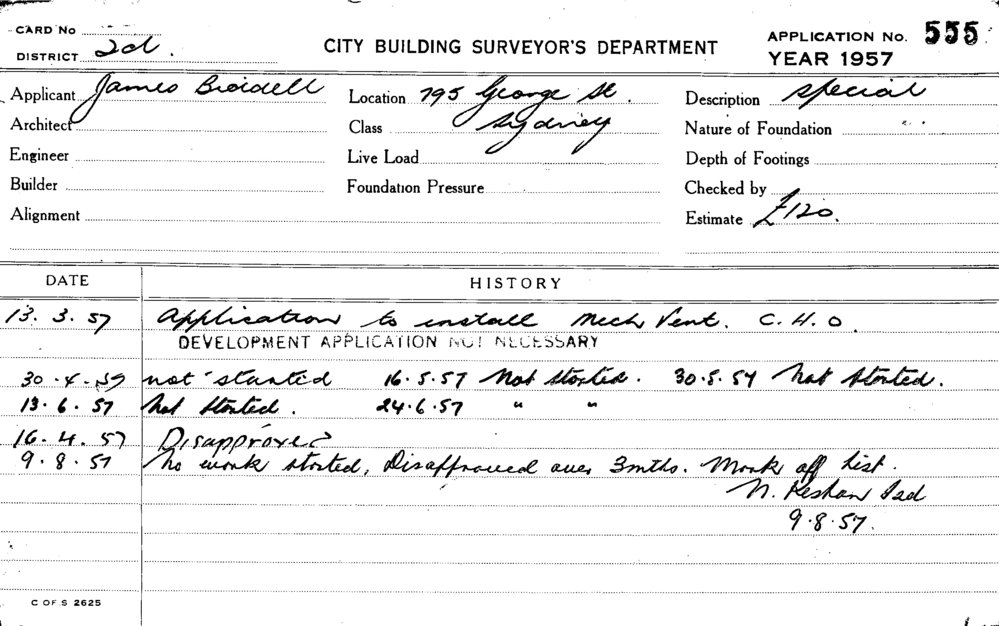 CARD No
DISTRICT 2d.
CITY BUILDING SURVEYOR'S DEPARTMENT
APPLICATION No. 555
YEAR 1957
Applicant James
Location 795 George St.
Description Special
Architect
Class Sydney
Nature of Foundation
Engineer
Live Load
Depth of Footings
Builder
Foundation Pressure
Checked by
Alignment
Estimate £120.
DATE HISTORY
13. 3. 57 Application to install Mech Vent. C. H. O.
DEVELOPMENT APPLICATION NOT NECESSARY
30.4.57 not started 16.5.57 Not started. 30.5.57 Not started.
13.6.57 Not started. 24.6.57 " "
16. 4. 57 Disapproved
9.8.57 No work started, Disapproved over 3mths. Mark off list.
N.
9.8.57.
C OF S 2625